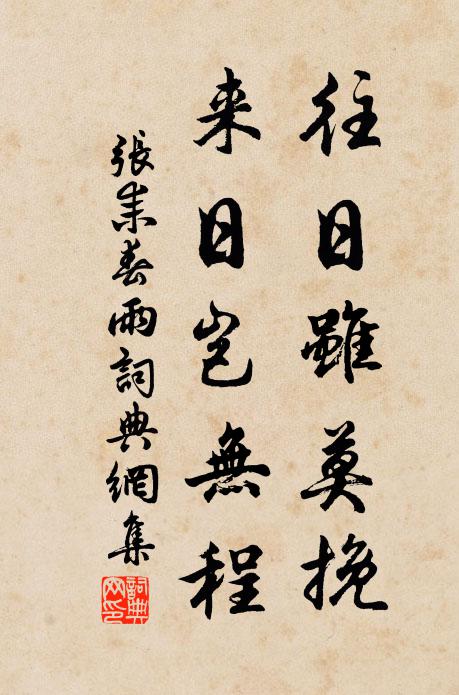 往日雖莫挽
来日豈無程
張耒春雨詞典網集
詞典網印